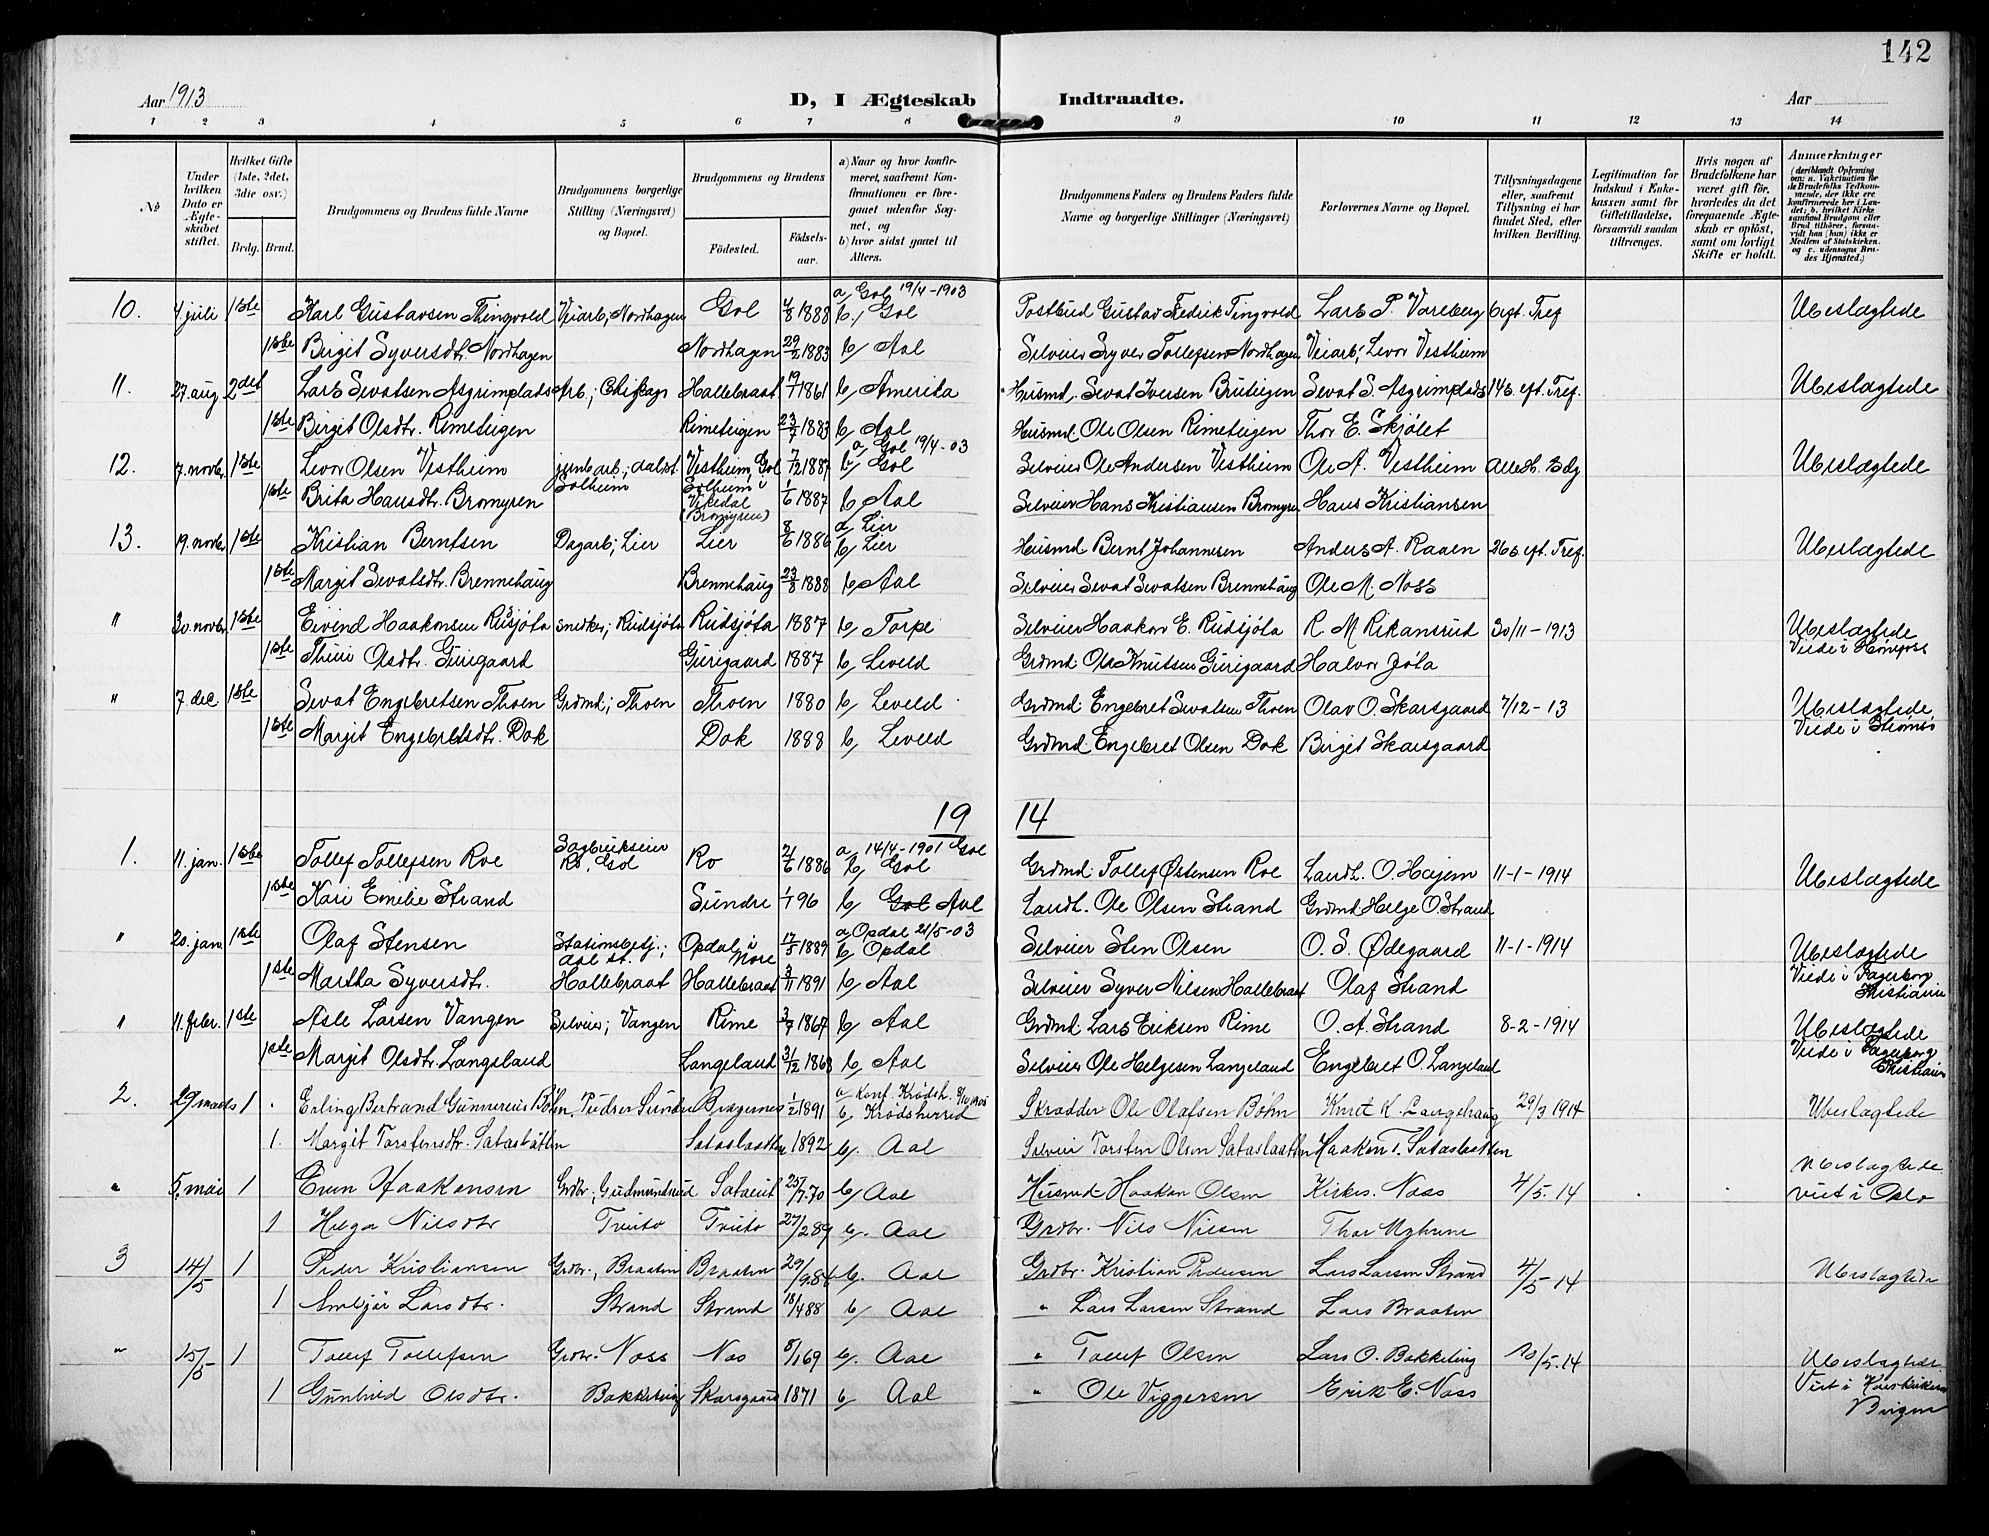 142
Aar 1913
D, I Ægteskab Indtraadte.
Aar
1 2 3 4 5 6 7 8 9 10 11 12 13 14
No
Under hvilken Dato er Ægteskabet stiftet.
Hvilket Gifte (1ste, 2det, 3die osv.)
Brdg. Brud.
Brudgommens og Brudens fulde Navne
Brudgommens borgerlige Stilling (Næringsvei) og Bopæl.
Brudgommens og Brudens
Fødested.
Fødselsaar.
a) Naar og hvor konfirmeret, saafremt Konfirmationen er foregaaet udenfor Sognet, og
b) hvor sidst gaaet til Alters.
Brudgommens Faders og Brudens Faders fulde Navne og borgerlige Stillinger (Næringsvei)
Forlovernes Navne og Bopæl.
Tillysningsdagene eller, saafremt Tillysning ei har fundet Sted, efter hvilken Bevilling.
Legitimation for Indskud i Enkekassen samt for Giftetilladelse, forsaavidt saadan tiltrænges.
Hvis nogen af Brudefolkene har været gift før, hvorledes da det foregaaende Ægteskab er opløst, samt om lovligt Skifte er holdt.
Anmærkninger (deriblandt Opførsel om: a. Vakcination for de Brudefolks Vedkommende, der ikke ere konfirmerede her i Landet; b. hvilket Kirkesamfund Brudgom eller Brud tilhører, forsaavidt han (hun) ikke er Medlem af Statskirken. og c. udensogns Brudes Hjemsted.)
10. 4 juli 1ste Karl Gustavsen Thingvold Veiarb; Nordhagen Gol 4/8 1888 a, Gol 19/4-1903 b, Gol Postbud Gustav Fredrik Tingvold Lars P. Voreberg 6 eft. Tref Ubeslægtede
1ste Birgit Syversdtr. Nordhagen Nordhagen 29/2 1883 b, Aal Selveier Syver Tollefsen Nordhagen Veiarb; Levor Vestheim
11. 27 aug 2det Lars Sevatsen Asgrimplads Arb; Chikago Hallebraat 19/7 1861 b, Amerika Husmd. Sevat Iversen Bruteigen Sevat S. Asgrimplads 146 eft. Tref. Ubeslægtede
1ste Birgit Olsdtr. Rimeteigen Rimeteigen 23/7 1883 b, Aal Husmd Ole Olsen Rimeteigen Thor E. Skjølet
12. 7. novbr. 1ste Levor Olsen Vestheim jernb.arb.; Solheim Vestheim, Gol 7/12 1887 a, Gol 19/4-03 b, Gol Selveier Ole Andersen Vestheim Ole A. Vestheim Ubeslægtede
1ste Brita Hansdtr. Bromyren Solheim i Vikedal (Bromyren) 1/6 1887 b, Aal Selveier Hans Kristiansen Bromyren Hans Kristiansen
13. 19. novbr. 1ste Kristian Berntsen Dagarb; Lier Lier 8/6 1886 a, Lier b, Lier Husmd Bernt Johannesen Anders A. Raaen 266 eft. Tref. Ubeslægtede
1ste Margit Sevatsdtr. Brennehaug Brennehaug 23/8 1888 b, Aal Selveier Sevat Sevatsen Brennehaug Ole M. Noss
" 30 novbr. 1ste Eivend Haakonsen Rusjøta snedker; Rudsjøta Rudsjøta 1887 b, Torpe Selveier Haakon E. Rudsjøta R. M Rikansrud 30/11-1913 Ubeslægtede Viede i Hønefoss
1ste Thuri Olsdtr. Gurigaard Gurigaard 1887 b, Leveld Grdmd. Ole Knutsen Gurigaard Halvor Jøta
" 7 dec 1ste Sevat Engebretsen Thoen Grdmd; Thoen Thoen 1880 b, Leveld Grdmd. Engebret Sevatsen Thoen Olav O. Skarsgaard 7/12-13 Ubeslægtede Viede i Strømsø
1ste Margit Engebretsdtr. Dok Dok 1888 b, Leveld Grdmd. Engebret Olsen Dok Birgit Skarsgaard
19 14
1. 11. jan. 1ste Tollef Tollefsen Roe Sagbrukseier Ro, Gol Ro 21/6 1886 a, 14/4-1901 Gol b, Gol Grdmd. Tollef Østensen Roe Landh. O. Hajem 11-1-1914 Ubeslægtede
1ste Kari Emilie Strand Sundre 1/1 96 b, Gol Aal Landh. Ole Olsen Strand Grdmd. Helge O. Strand
" 20. jan. 1ste Olaf Stensen Stationsbetj.; Aal st. Opdal i Nore 17/5 1889 a, Opdal 21/5-03 b, Opdal Selveier Sten Olsen O. S. Ødegaard 11-1-1914 Ubeslægtede Viede i Fagerborg Kristiania
1ste Martha Syversdtr. Hallebraat Hallebraat 3/11 1891 b, Aal Selveier Syver Nilsen Hallebraat Olaf Strand
" 11. febr. 1ste Asle Larsen Vangen Selveier; Vangen Rime 3/7 1867 b, Aal Grdmd. Lars Eriksen Rime O. A. Strand 8-2-1914 Ubeslægtede Viede i Fagerborg Kristiania
1ste Margit Olsdtr. Langeland Langeland 31/12 1868 b, Aal Selveier Ole Helgesen Langeland Engebret O. Langeland
2. 29 marts 1 Erling Bertrand Gunnerius Bøhn, Sundre Bragernes 1/2 1891 a, Konf. Krødsh. b, Krødsherred Skrædder Ole Olafsen Bøhn Knut K. Langehaug 29/3 1914 Ubeslægtede
1. Margit Torstensdtr. Sataslåtten Sataslaatten 1892 b, Aal Selveier Torsten Olsen Sataslaatten Haakon T. Sataslaatten
" 5. mai 1 Even Haakensen Grdbr., Gudmundsrud Sataeiet 25/7.70 b, Aal Husmd Haakon Olsen Kirkes. Noss 4/5.14 Ubeslægtede viet i Oslo
1 Helga Nilsdtr Tveito Tveito 27/2 89 b, Aal Grdbr. Nils Nilsen Thor
3 14/5 1 Peder Kristiansen Grdbr., Braaten Braaten 29/9.84 b, Aal Grdbr. Kristian Pedersen Lars Larsen Strand 4/5.14 Ubeslagtede
1 Embjør Larsdtr. Strand Strand 18/4 88 b, Aal " Lars Larsen Strand Lars Braaten
" 15/5 1 Tollef Tollefsen Grdbr. Noss Nos 8/1 69 b, Aal " Tollef Olsen Lars O. Bakketeig 10/5.14 Ubeslagtede. Viet i Korskirken Bergen
1 Gunhild Olsdtr. Bakketeig Skarsgaard 1871 b, Aal " Ole Viggersen Erik E. Noss